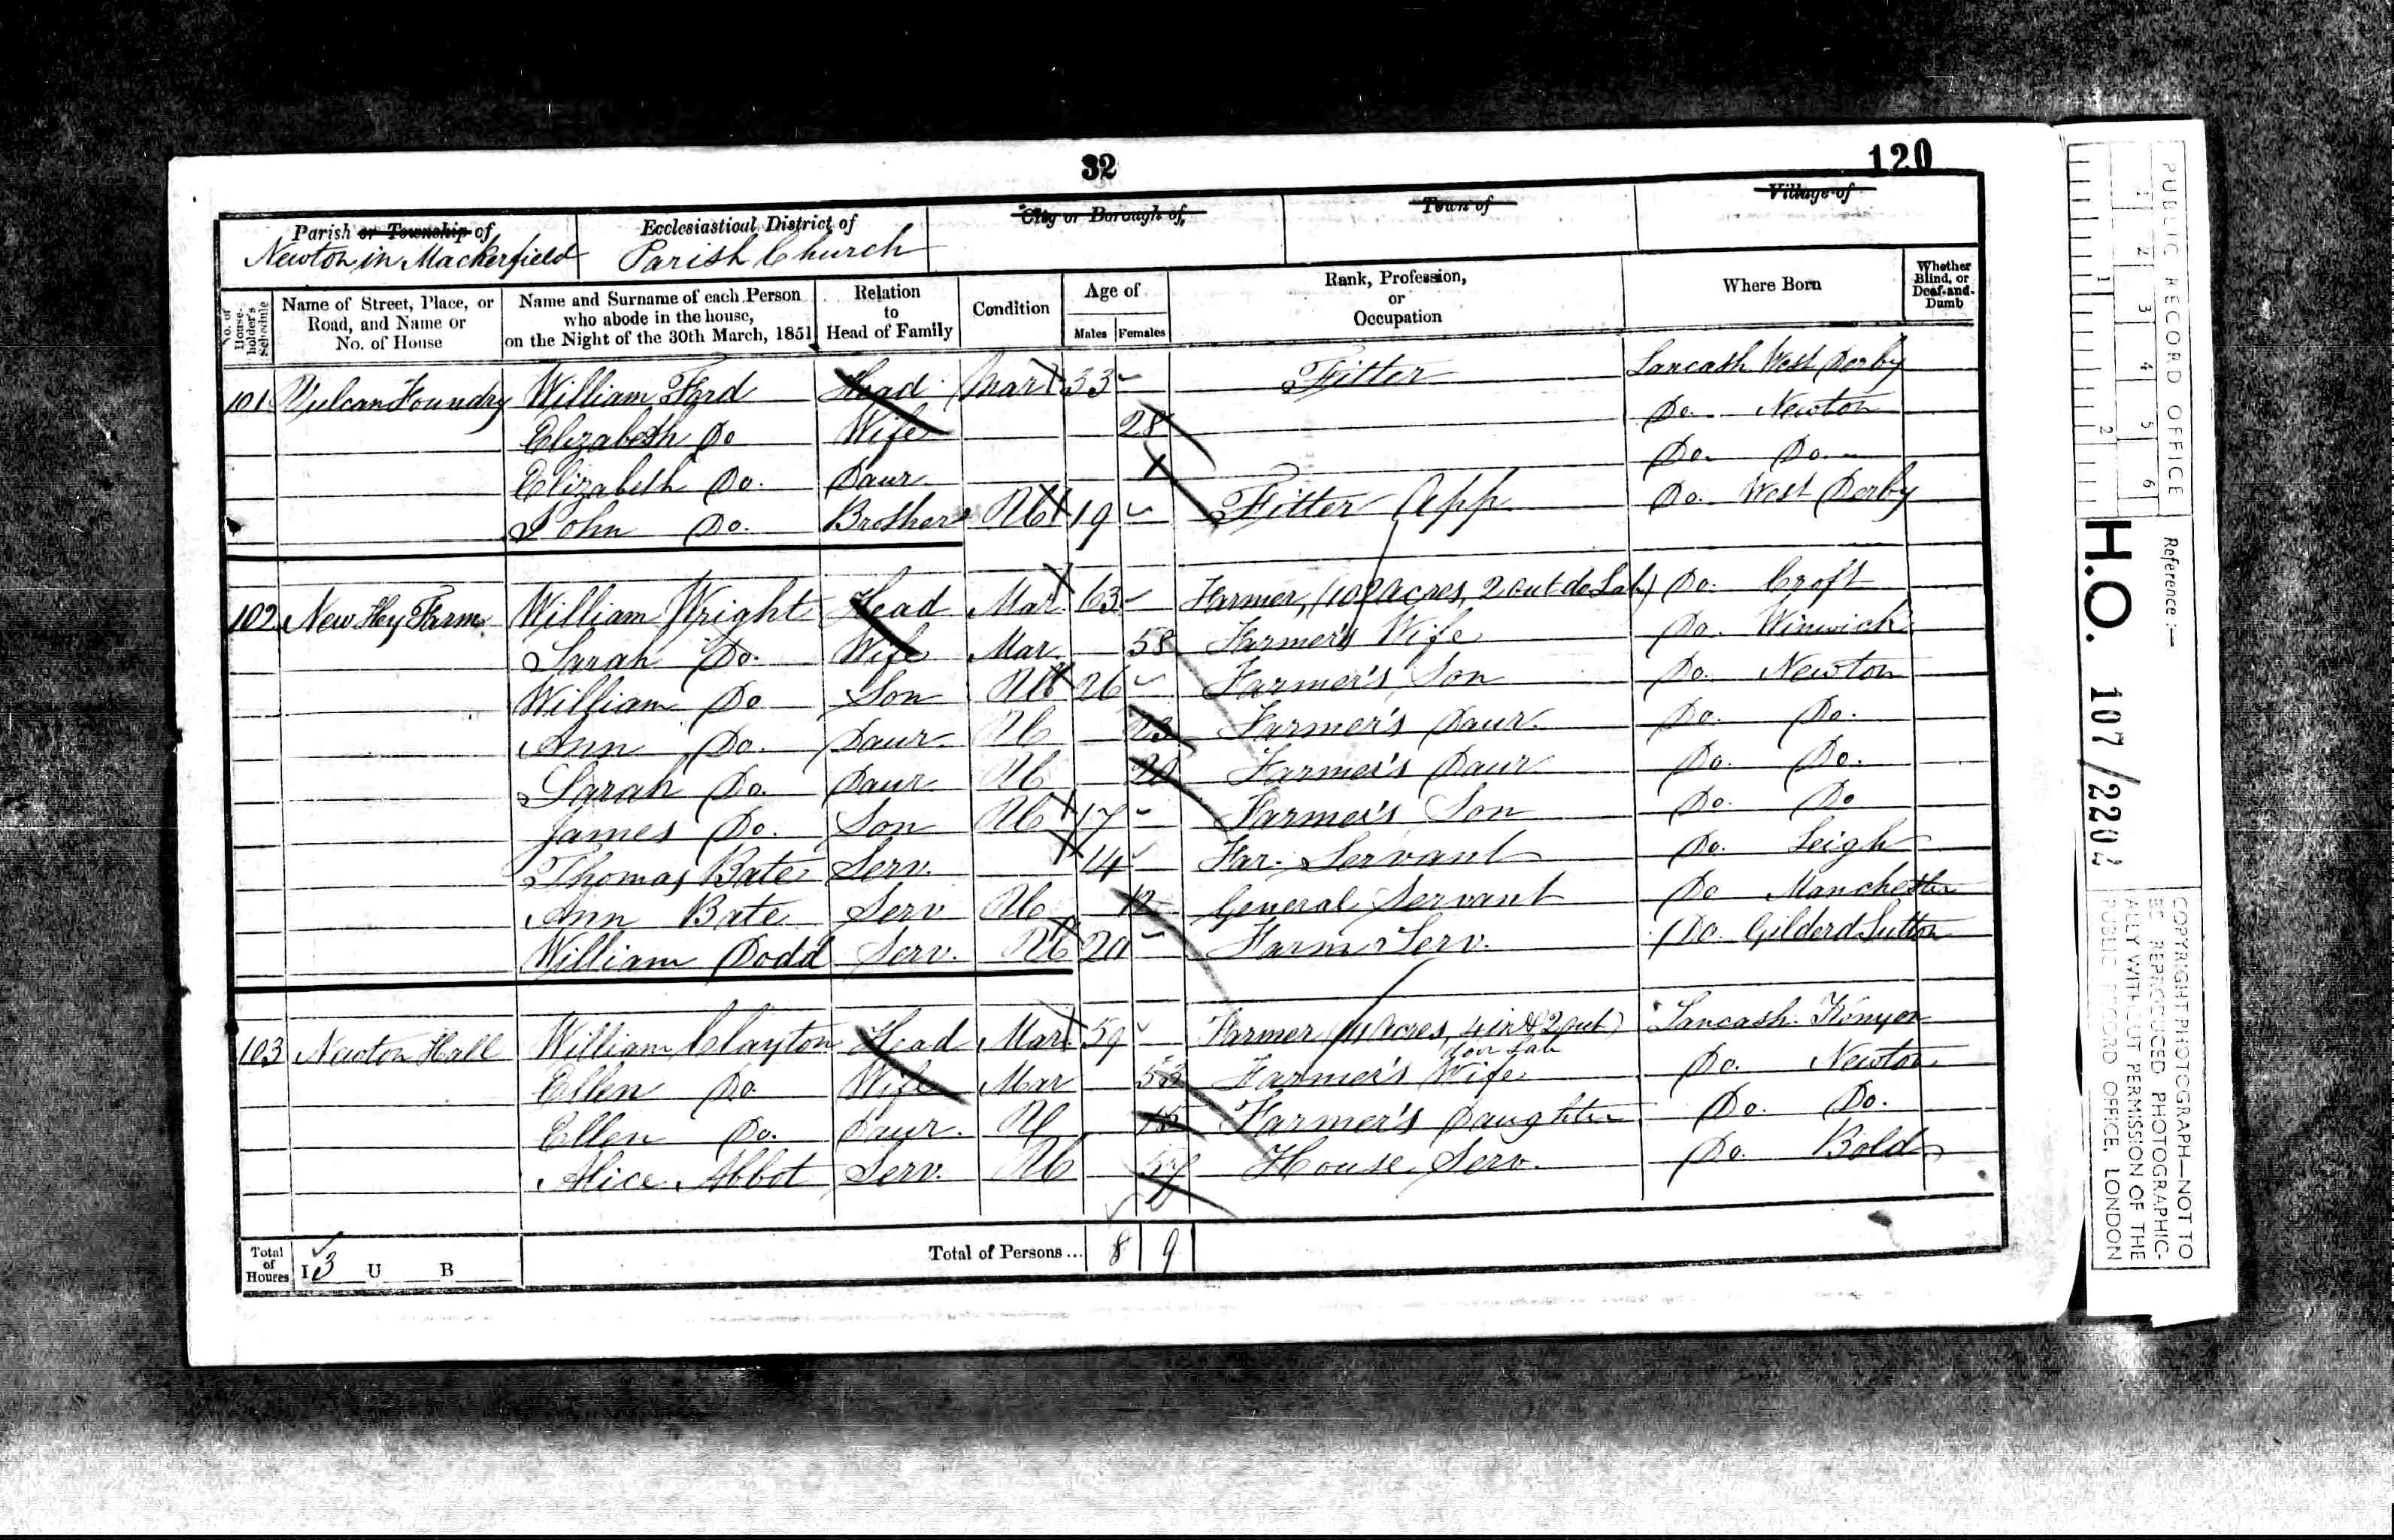 32
120
Parish or Township of
Newton in Mackerfield
Ecclesiastical District of
Parish Church
City or Borough of
Town of
Village of
No. of House-holder's Schedule
Name of Street, Place, or Road, and Name or No. of House
Name and Surname of each Person who abode in the house, on the Night of the 30th March, 1851
Relation to Head of Family
Condition
Age of
Males Females
Rank, Profession, or Occupation
Where Born
Whether Blind, or Deaf-and-Dumb
101 Vulcan Foundry William Ford Head Mar 33 Fitter Lancash West Derby
Elizabeth Do Wife 28 Do. Newton
Elizabeth Do. Daur. Do. Do.
John Do. Brother U 19 Fitter App Do. West Derby
102 New Hey Farm William Wright Head Mar 63 Farmer, (102 Acres, 2 out do Lab) Do. Croft
Sarah Do. Wife Mar 58 Farmer's Wife Do. Winwick
William Do Son U 26 Farmer's Son Do. Newton
Ann Do. Daur. U 23 Farmer's Daur. Do. Do.
Sarah Do. Daur U 20 Farmer's Daur. Do. Do.
James Do. Son U 17 Farmer's Son Do. Do
Thomas Bate Serv. 14 Far. Servant Do. Leigh
Ann Bate Serv U General Servant Do Manchester
William Dodd Serv. U 20 Farm Serv. Do. Gilderd Sutton
103 Newton Hall William Clayton Head Mar 59 Farmer Acres, 4 in & 2 out door Lab Lancash. Kenyon
Ellen Do Wife Mar Farmer's Wife Do. Newton
Ellen Do. Daur. U 15 Farmer's Daughter Do. Do.
Alice Abbot Serv. U 57 House Serv. Do. Bold
Total of Houses I 3 U B Total of Persons... 8 9
PUBLIC RECORD OFFICE
1 2 3 4 5 6
1 2
Reference:—
H.O. 107/2202
COPYRIGHT PHOTOGRAPH—NOT TO BE REPRODUCED PHOTOGRAPHICALLY WITHOUT PERMISSION OF THE PUBLIC RECORD OFFICE, LONDON